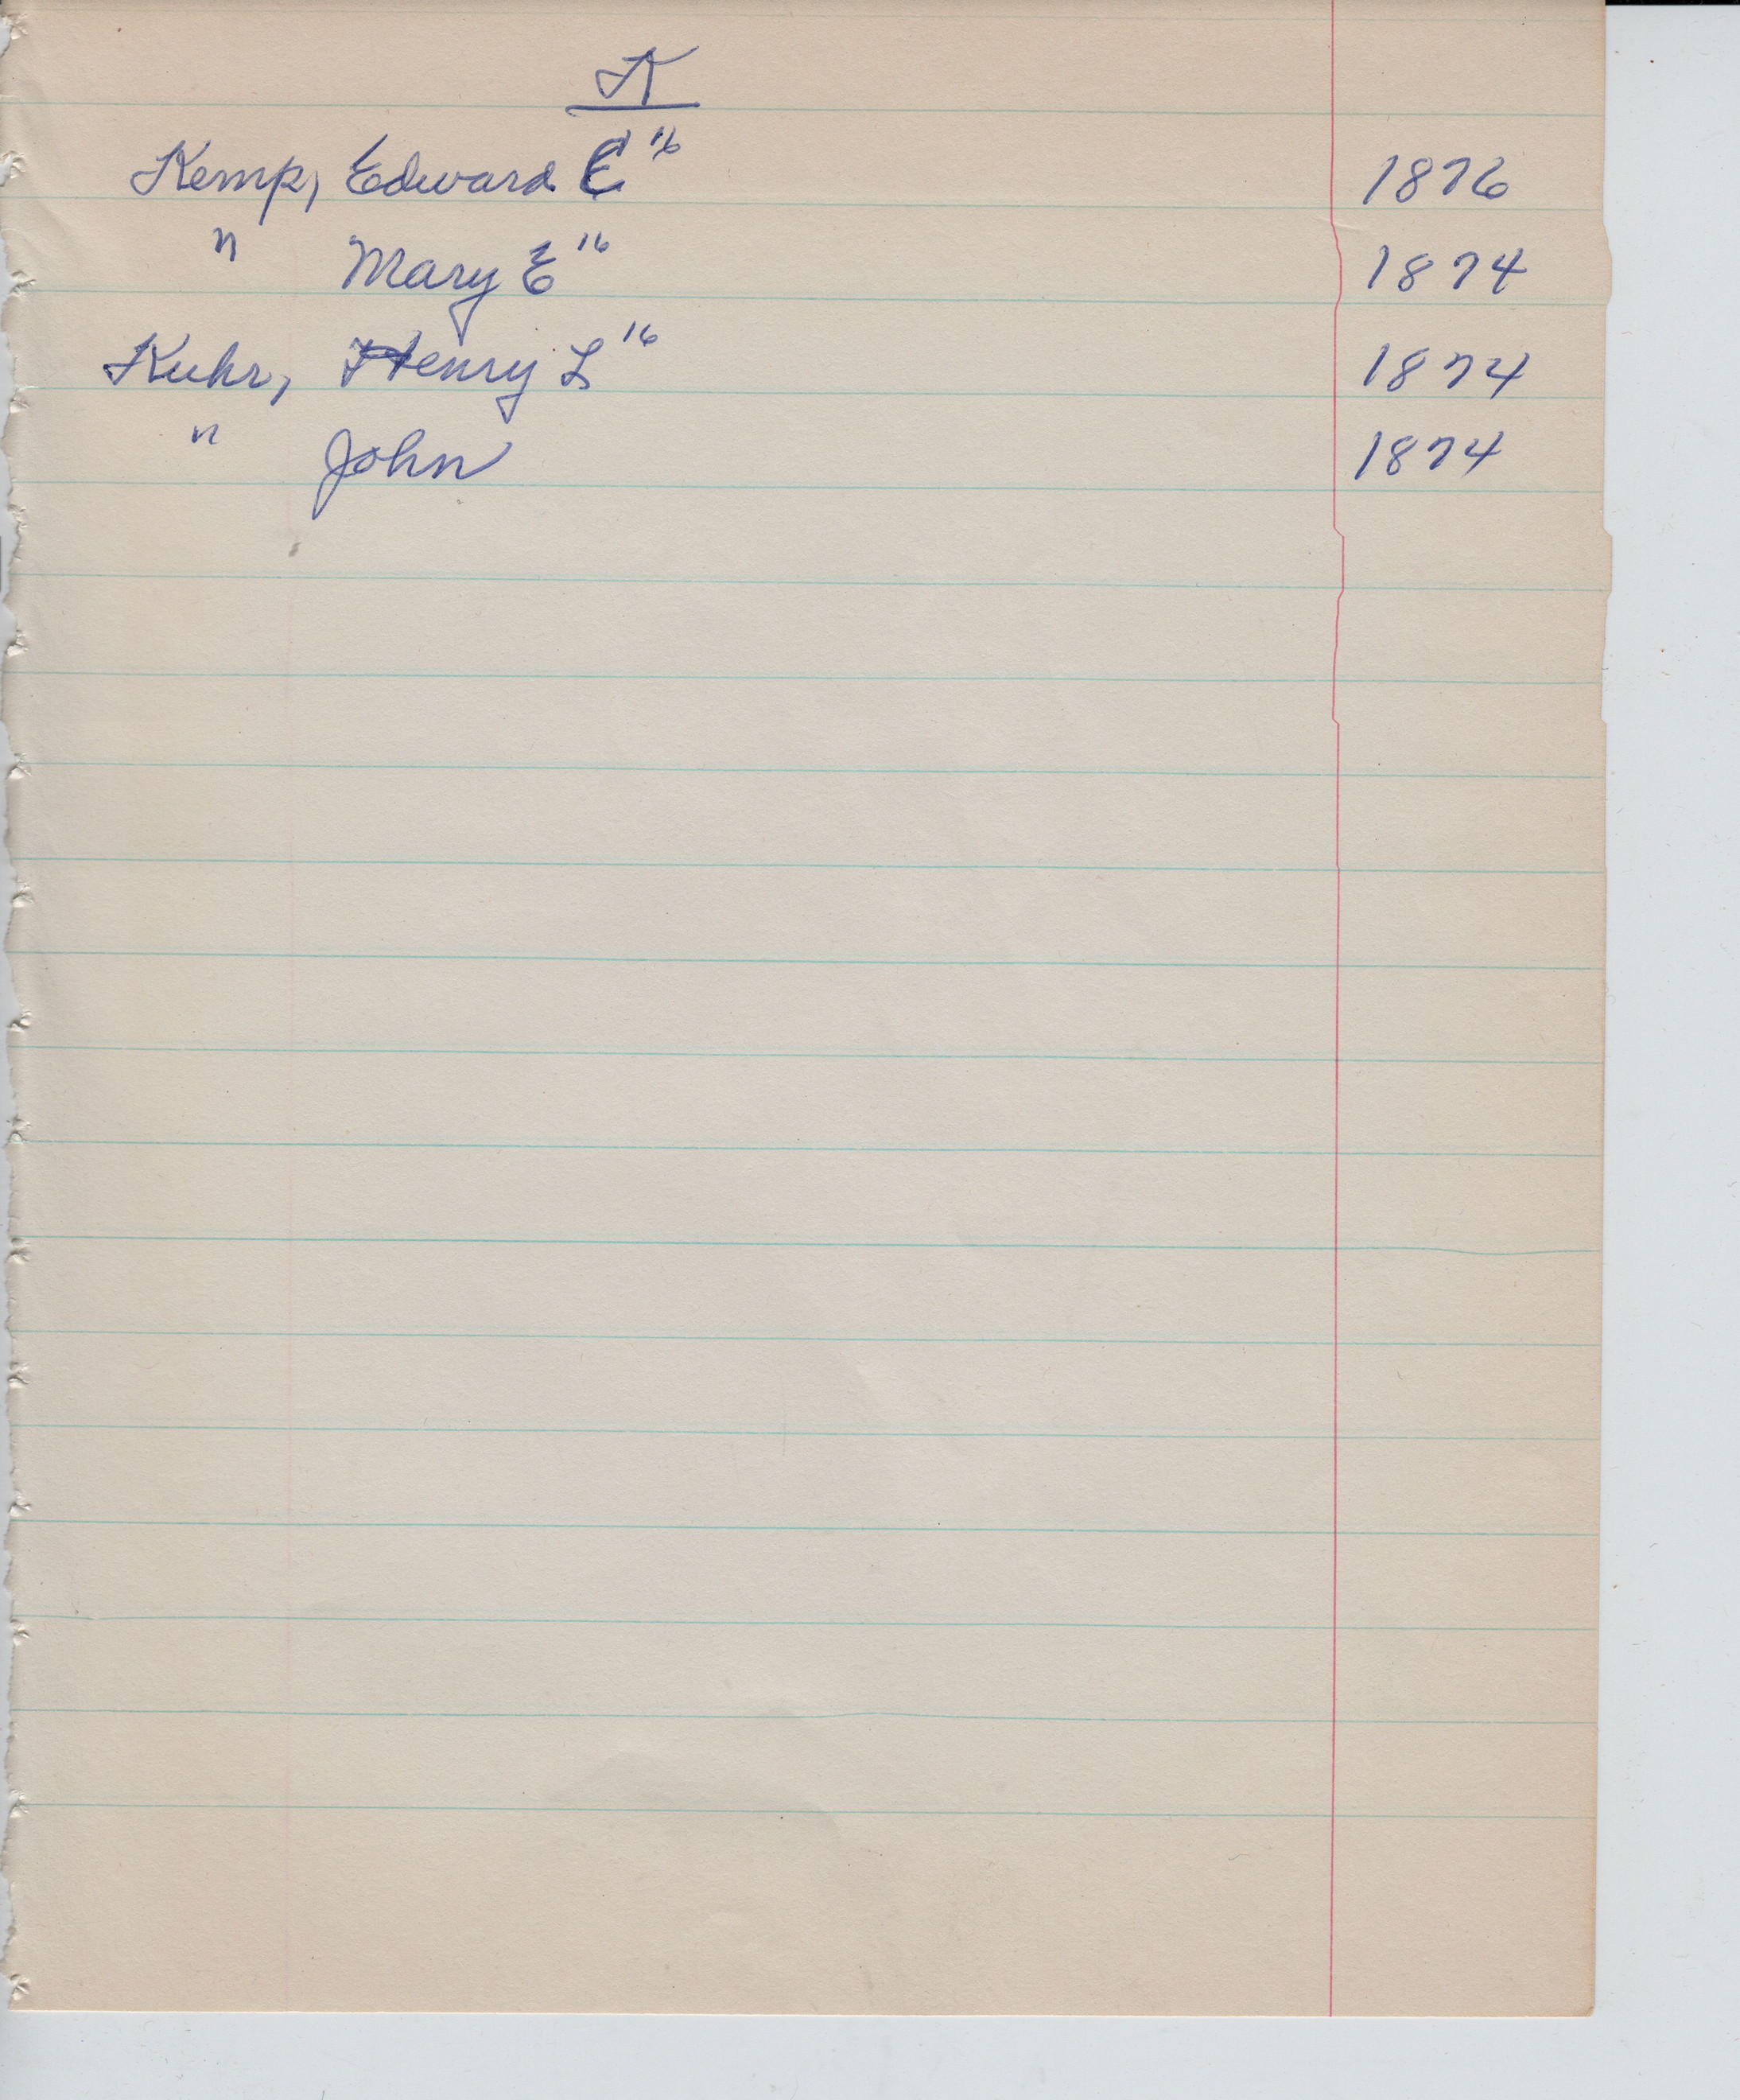 K
Kemp, Edward C 16 1876
" Mary E 16 1874
Kuhr, Henry L 16 1874
" John 1874